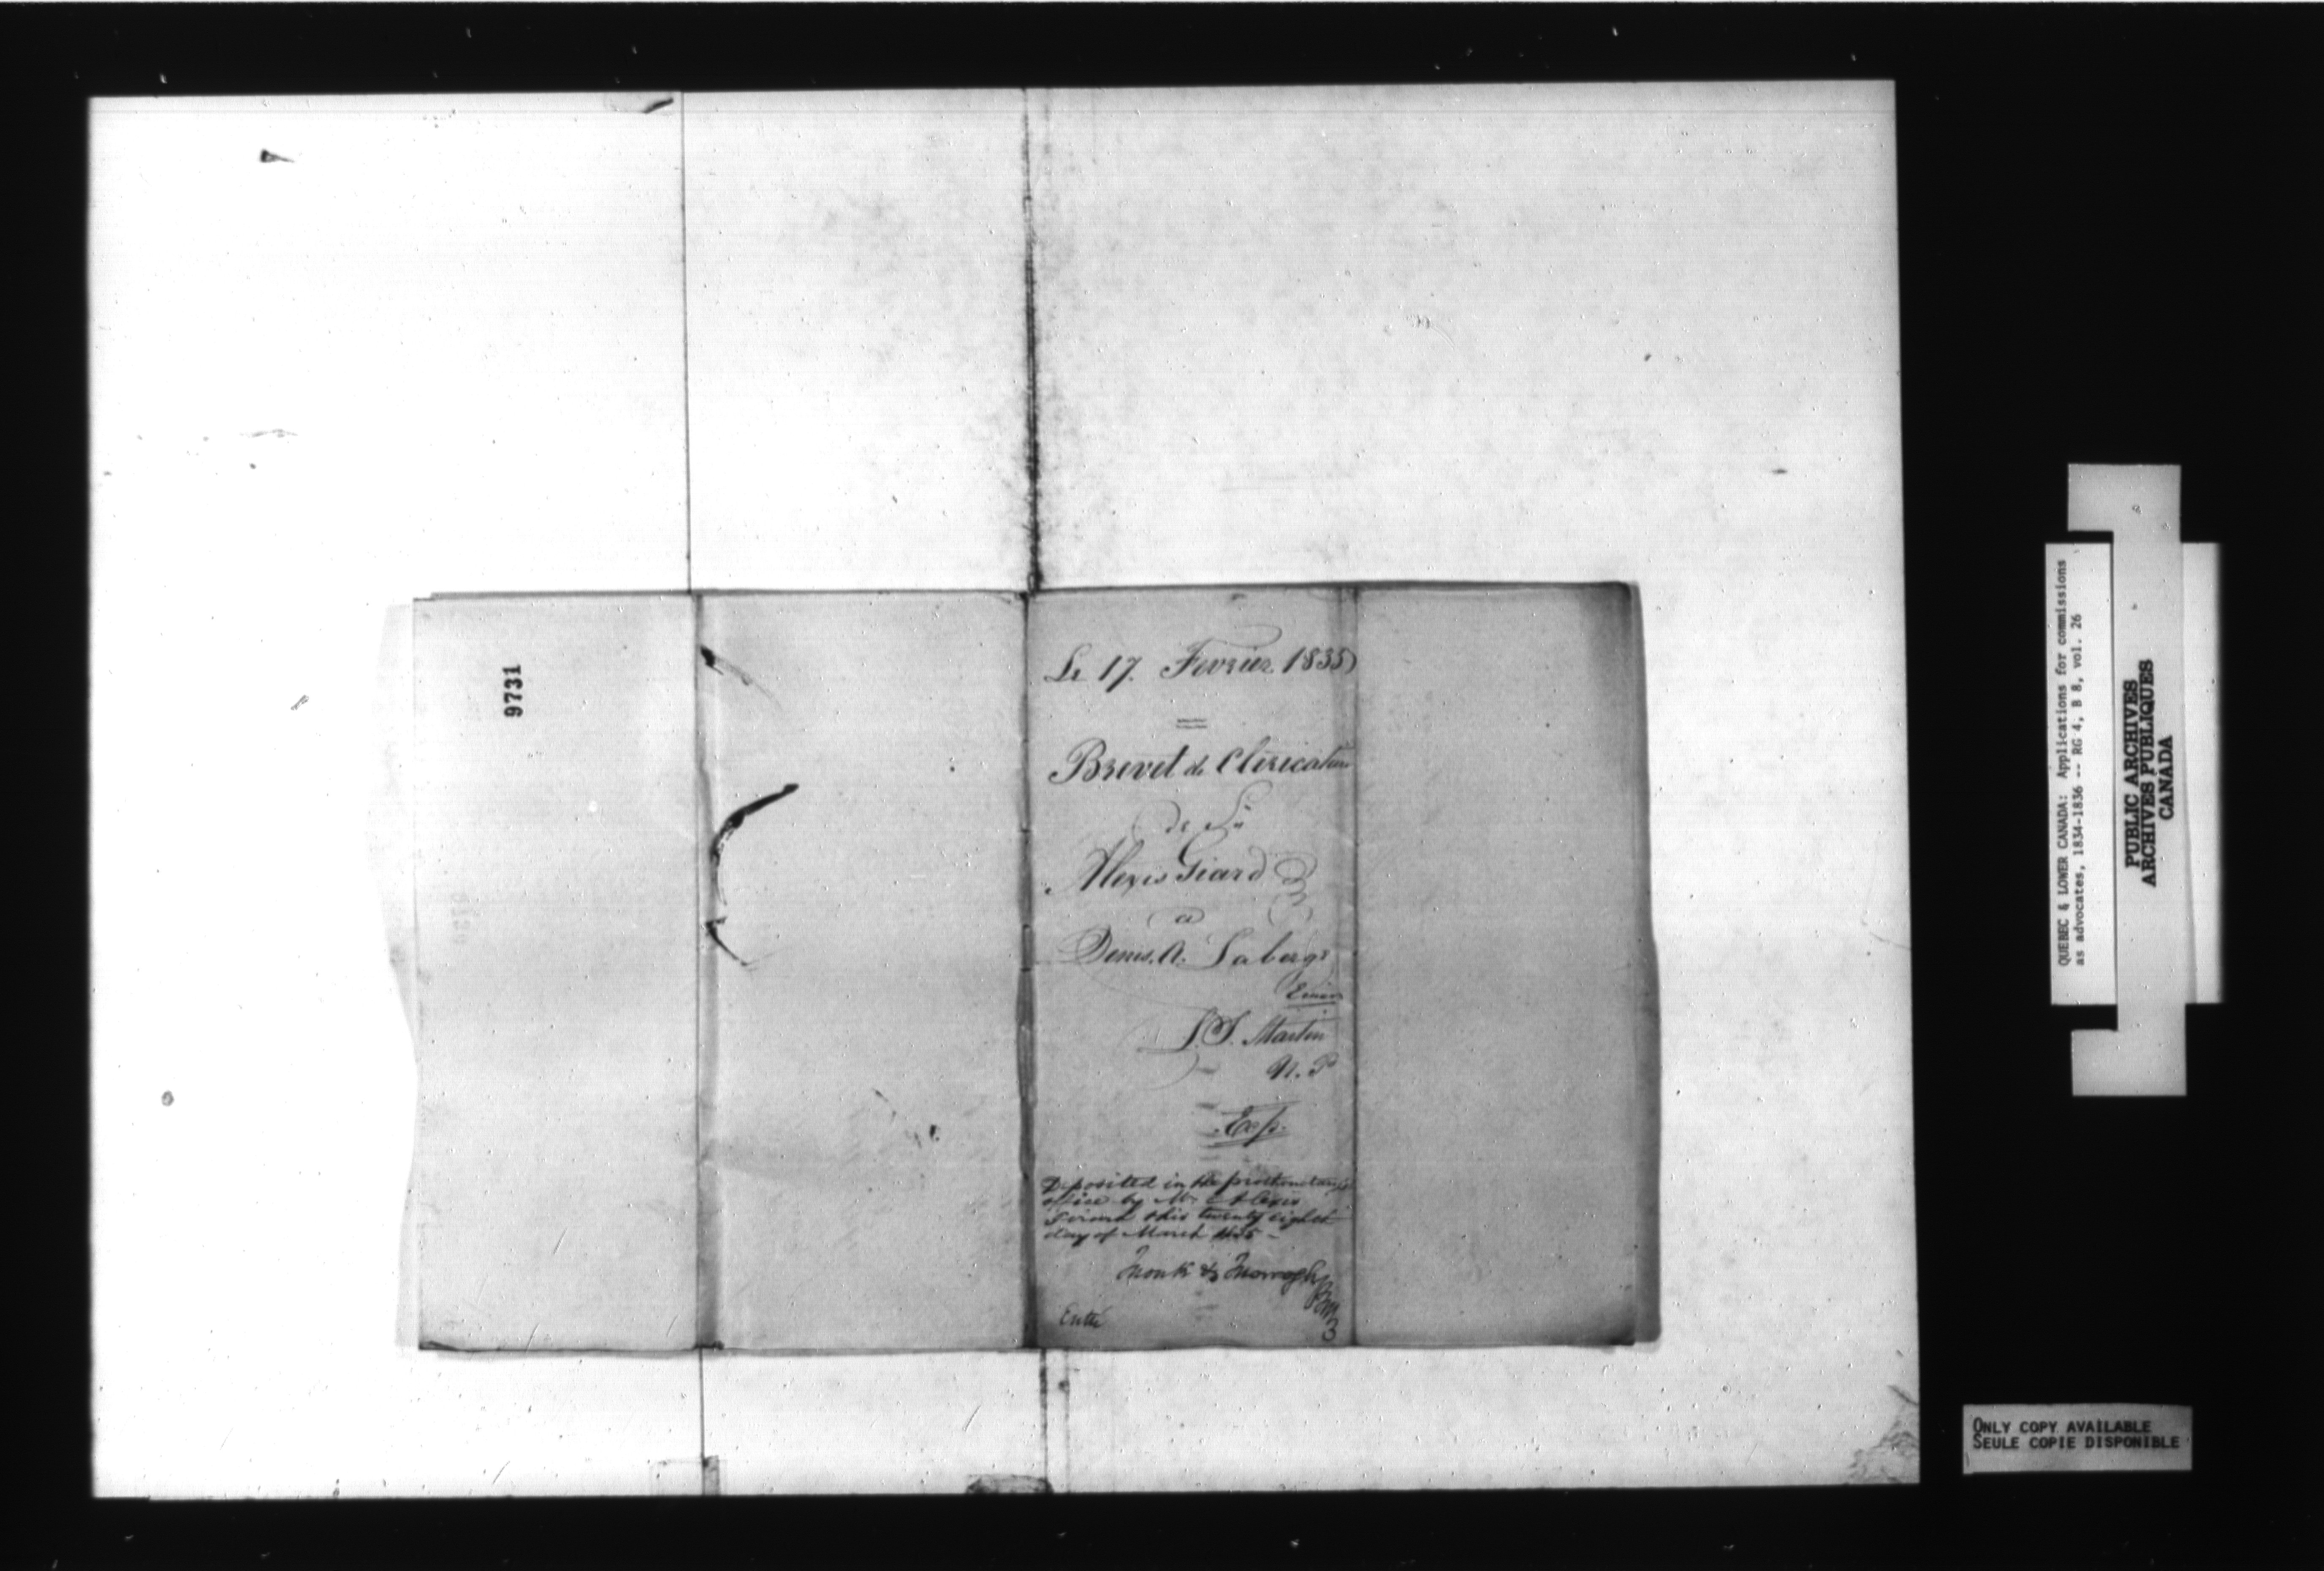 9731
Le 17. Fevrier 1835
Brevet de Clericature
de Sr
Alexis Giard
a
Denis. A. Laberge
Ecuier
Martin
N. P
Exp.
Deposited in the prothonotary's
office by Mr. Alexis
Girard this twenty eight
day of March 1835 -
Monk & Morrogh
Entré
QUEBEC & LOWER CANADA: Applications for commissions
as advocates, 1834-1836 -- RG 4, B 8, vol. 26
PUBLIC ARCHIVES
ARCHIVES PUBLIQUES
CANADA
ONLY COPY AVAILABLE
SEULE COPIE DISPONIBLE